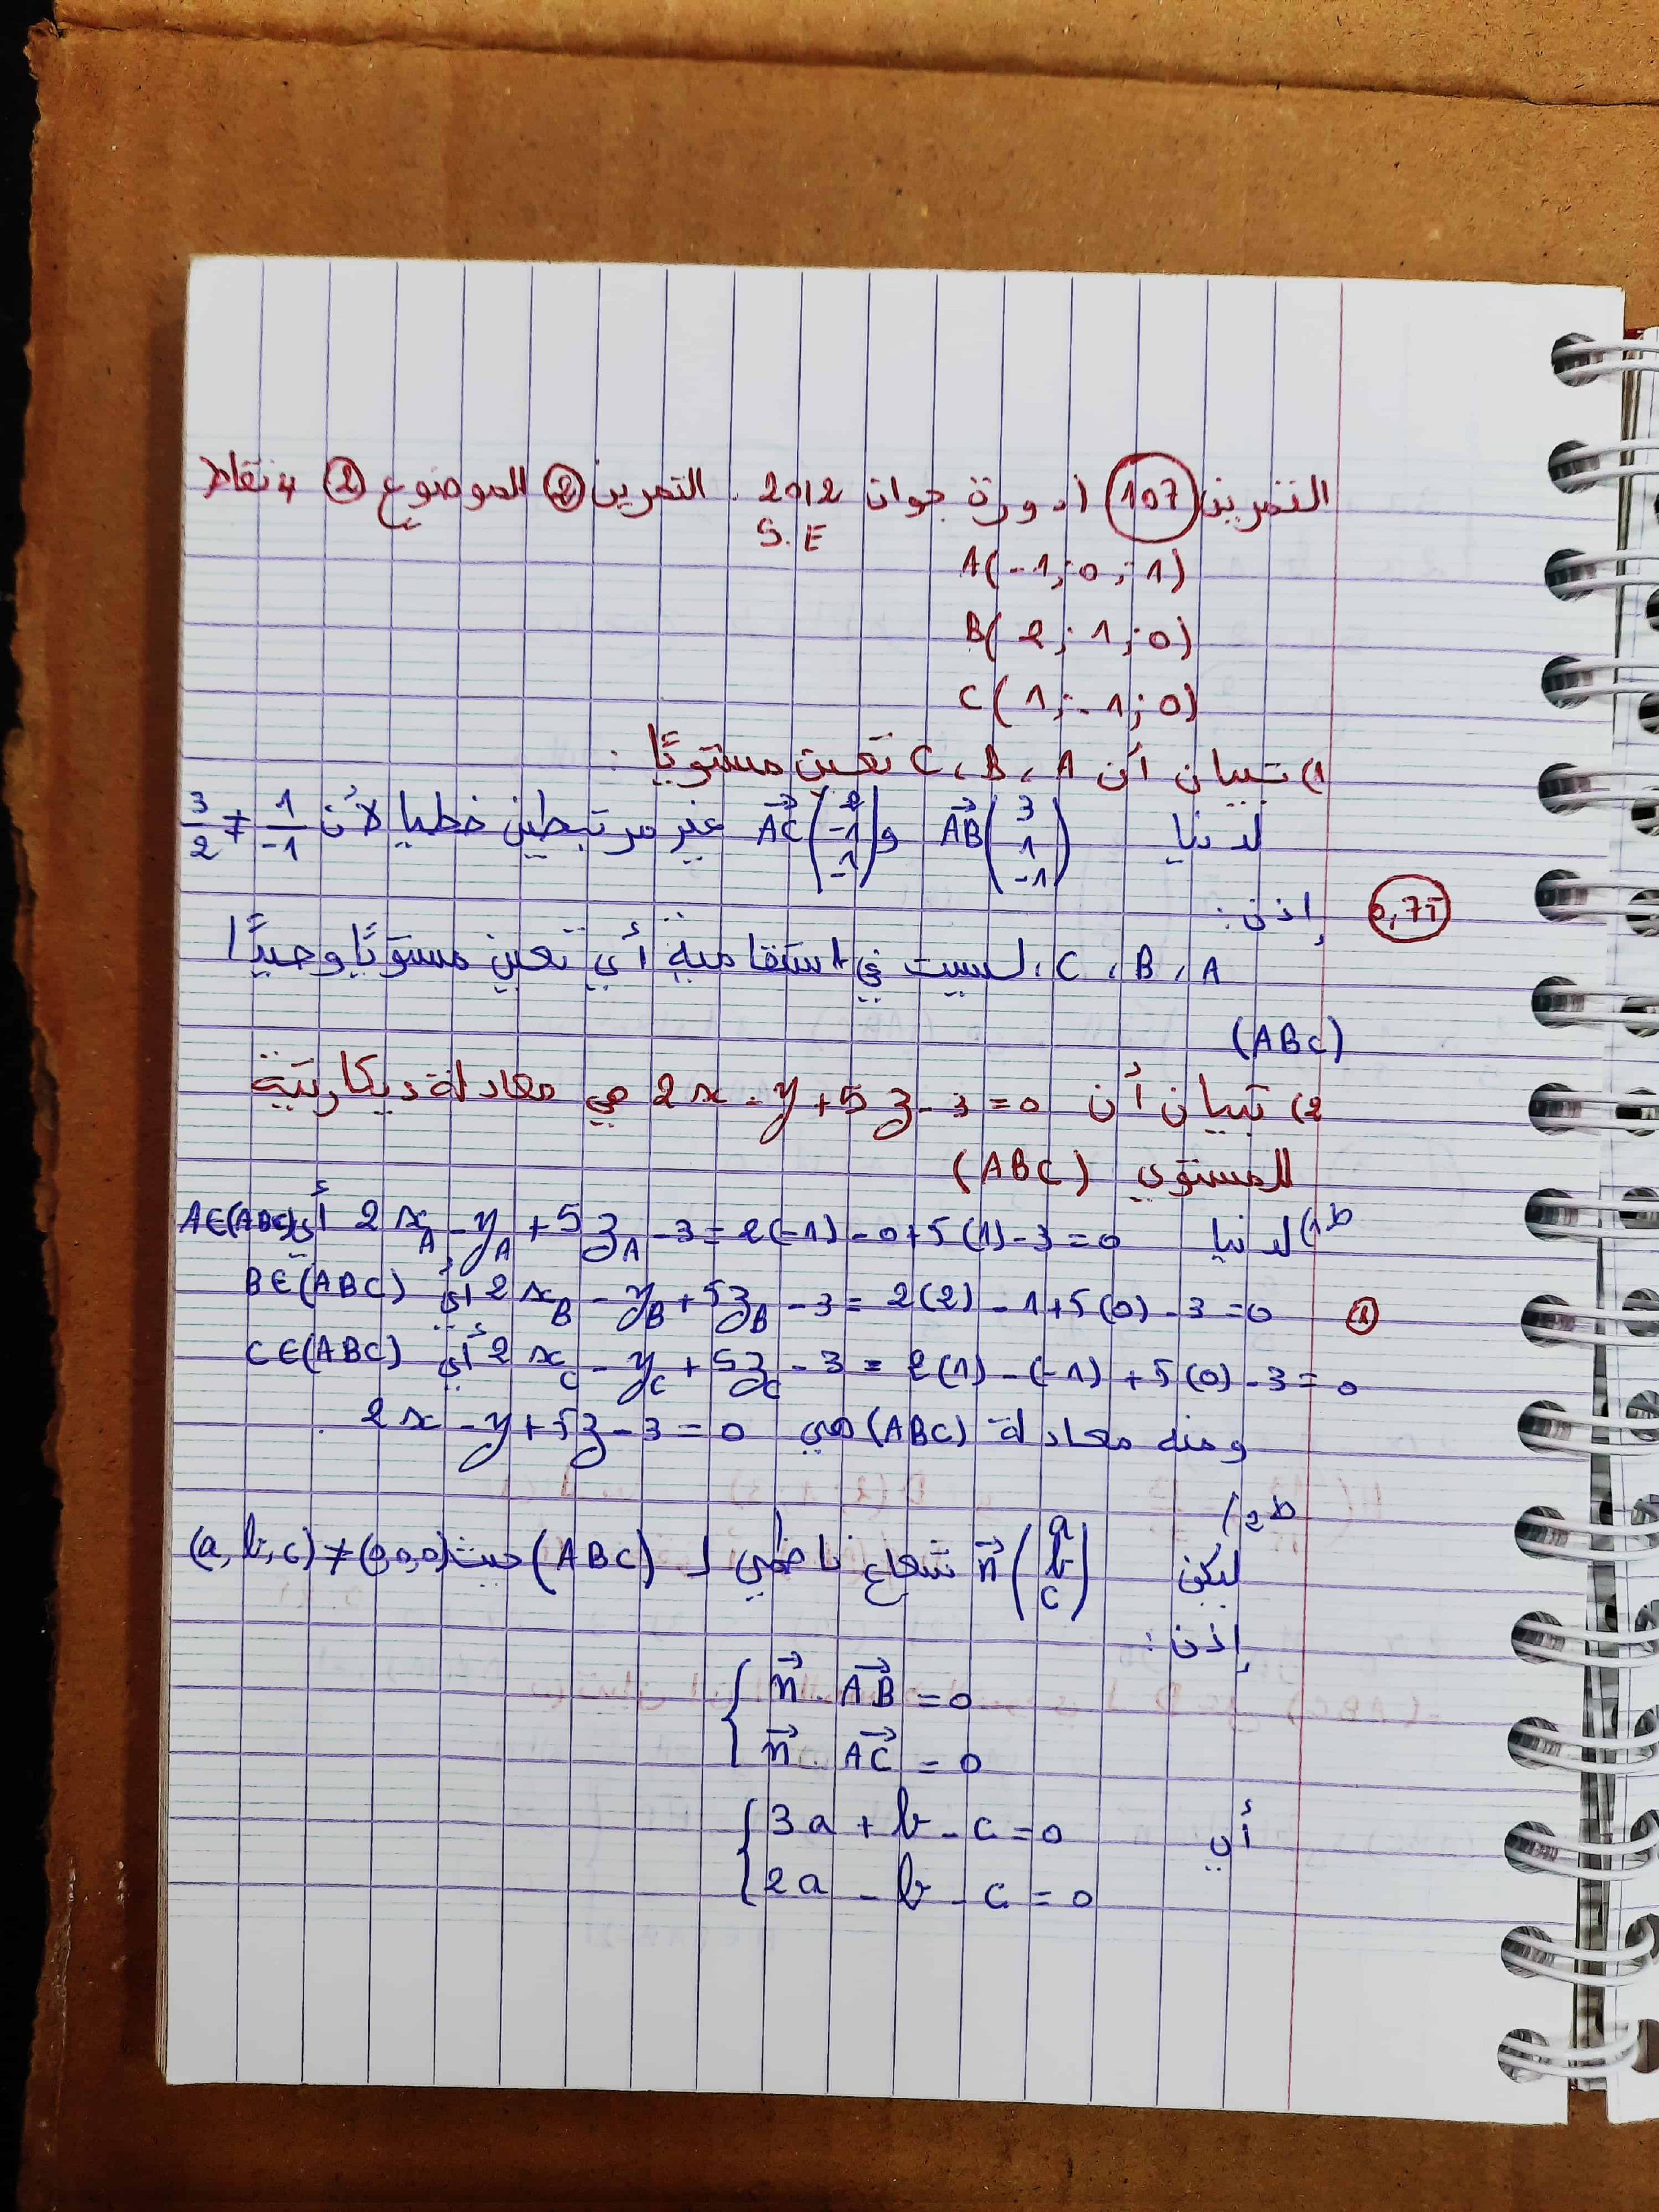 التمرين (107) (دورة جوان 2012. التمرين (2) الموضوع (2) 4 نقاط
S.E
A(-1; 0; 1)
B(2; 1; 0)
C(1; -1; 0)
1) تبيان أن A، B، C تعين مستويًا :
لدينا AB→(3 1 -1) و AC→(2 -1 -1) غير مرتبطين خطيا لأن 1/-1 ≠ 3/2
0,75
إذن :
A، B، C، ليست في استقامية أي تعين مستويًا وحيدًا
(ABC)
2) تبيان أن 2x - y + 5z - 3 = 0 هي معادلة ديكارتية
للمستوي (ABC)
ط1) لدينا 2x_A - y_A + 5z_A - 3 = 2(-1) - 0 + 5(1) - 3 = 0 أي A∈(ABC)
2x_B - y_B + 5z_B - 3 = 2(2) - 1 + 5(0) - 3 = 0 أي B∈(ABC)
(1)
2x_C - y_C + 5z_C - 3 = 2(1) - (-1) + 5(0) - 3 = 0 أي C∈(ABC)
ومنه معادلة (ABC) هي 2x - y + 5z - 3 = 0 .
ط2)
ليكن n→(a b c) شعاع ناظمي لـ (ABC) حيث (a, b, c) ≠ (0,0,0)
إذن :
{ n→ . AB→ = 0
n→ . AC→ = 0
أي { 3a + b - c = 0
2a - b - c = 0